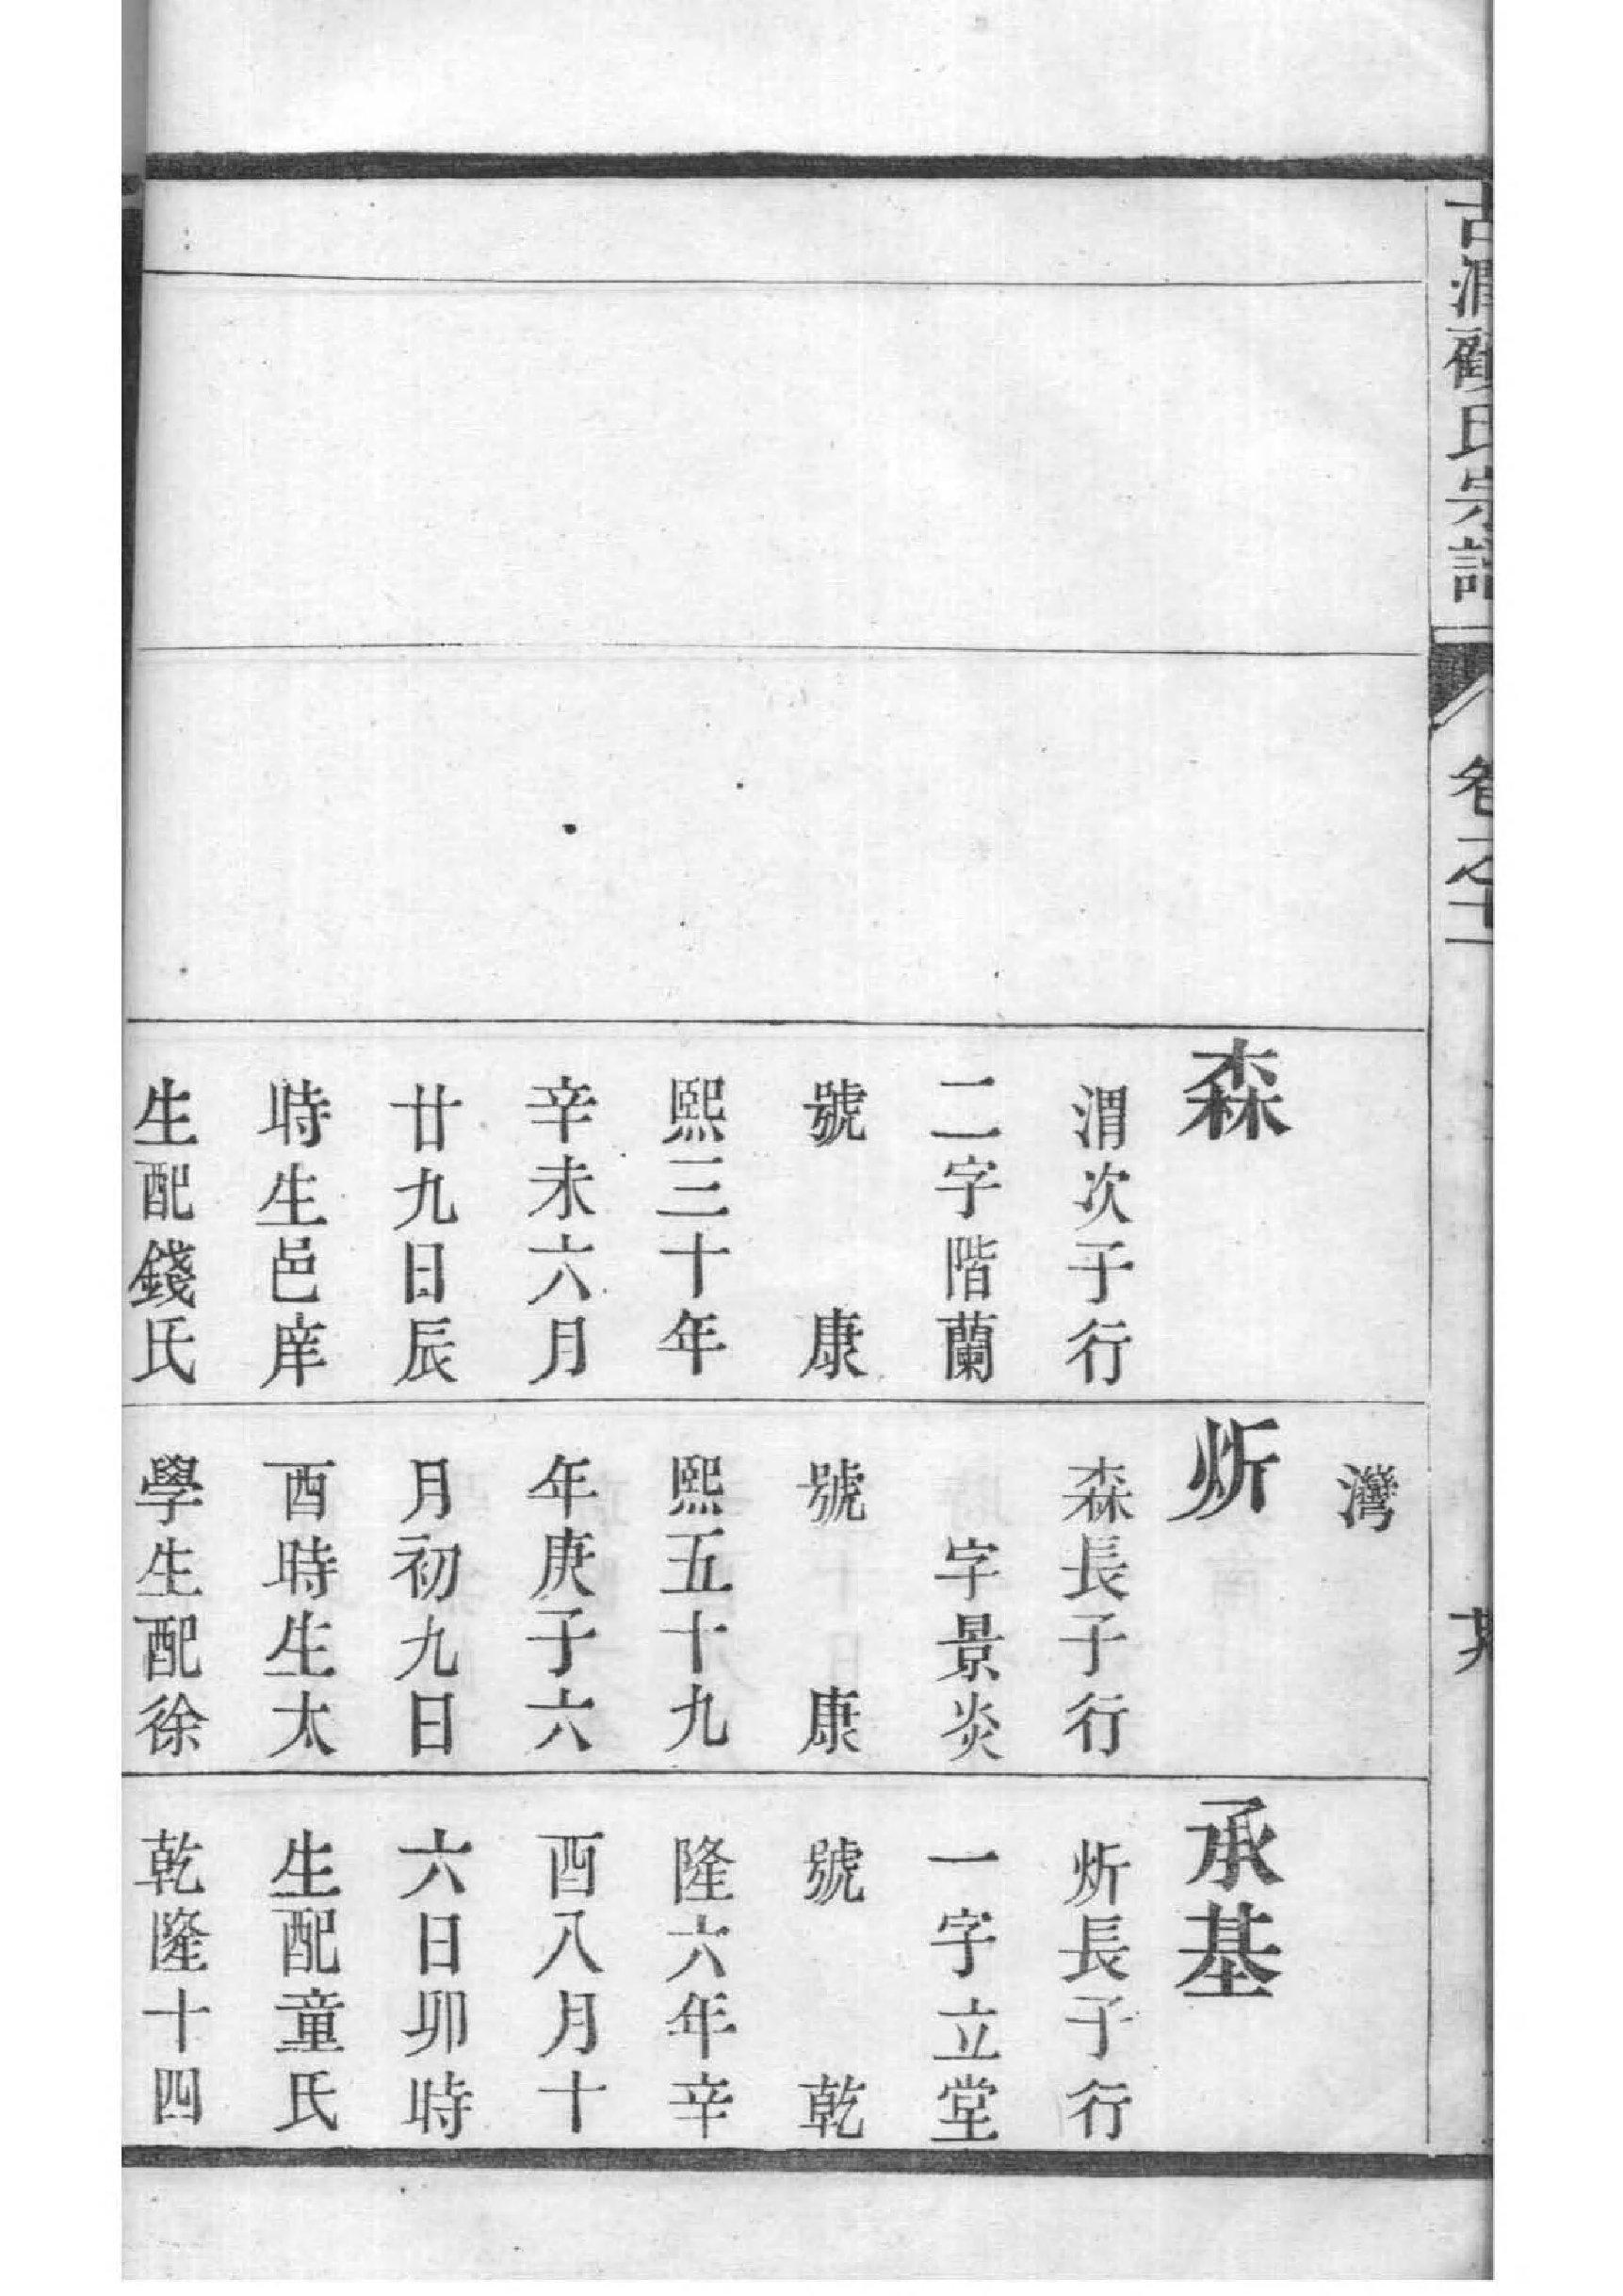 古潤顧氏宗譜
卷之十一
森
渭次子行
二字階蘭
號 康
熙三十年
辛未六月
廿九日辰
時生邑庠
生配錢氏
灣
炘
森長子行
字景炎
號 康
熙五十九
年庚子六
月初九日
酉時生太
學生配徐
承基
炘長子行
一字立堂
號 乾
隆六年辛
酉八月十
六日卯時
生配童氏
乾隆十四